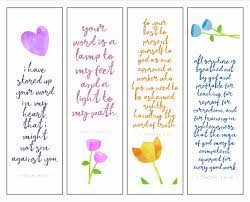 i have
stored up
your word
in my
heart,
that i
might
not sin
against you.
your
word is a
lamp to
my feet
and a
light to
my path.
do your
best to
present
yourself to
god as one
approved a
worker who
has no need to
be ashamed
rightly
handling the
word of truth.
all scripture is
breathed out
by god and
profitable for
teaching, for
reproof, for
correction, and
for training in
righteousness
that the man
of god may be
competent,
equipped for
every good work.